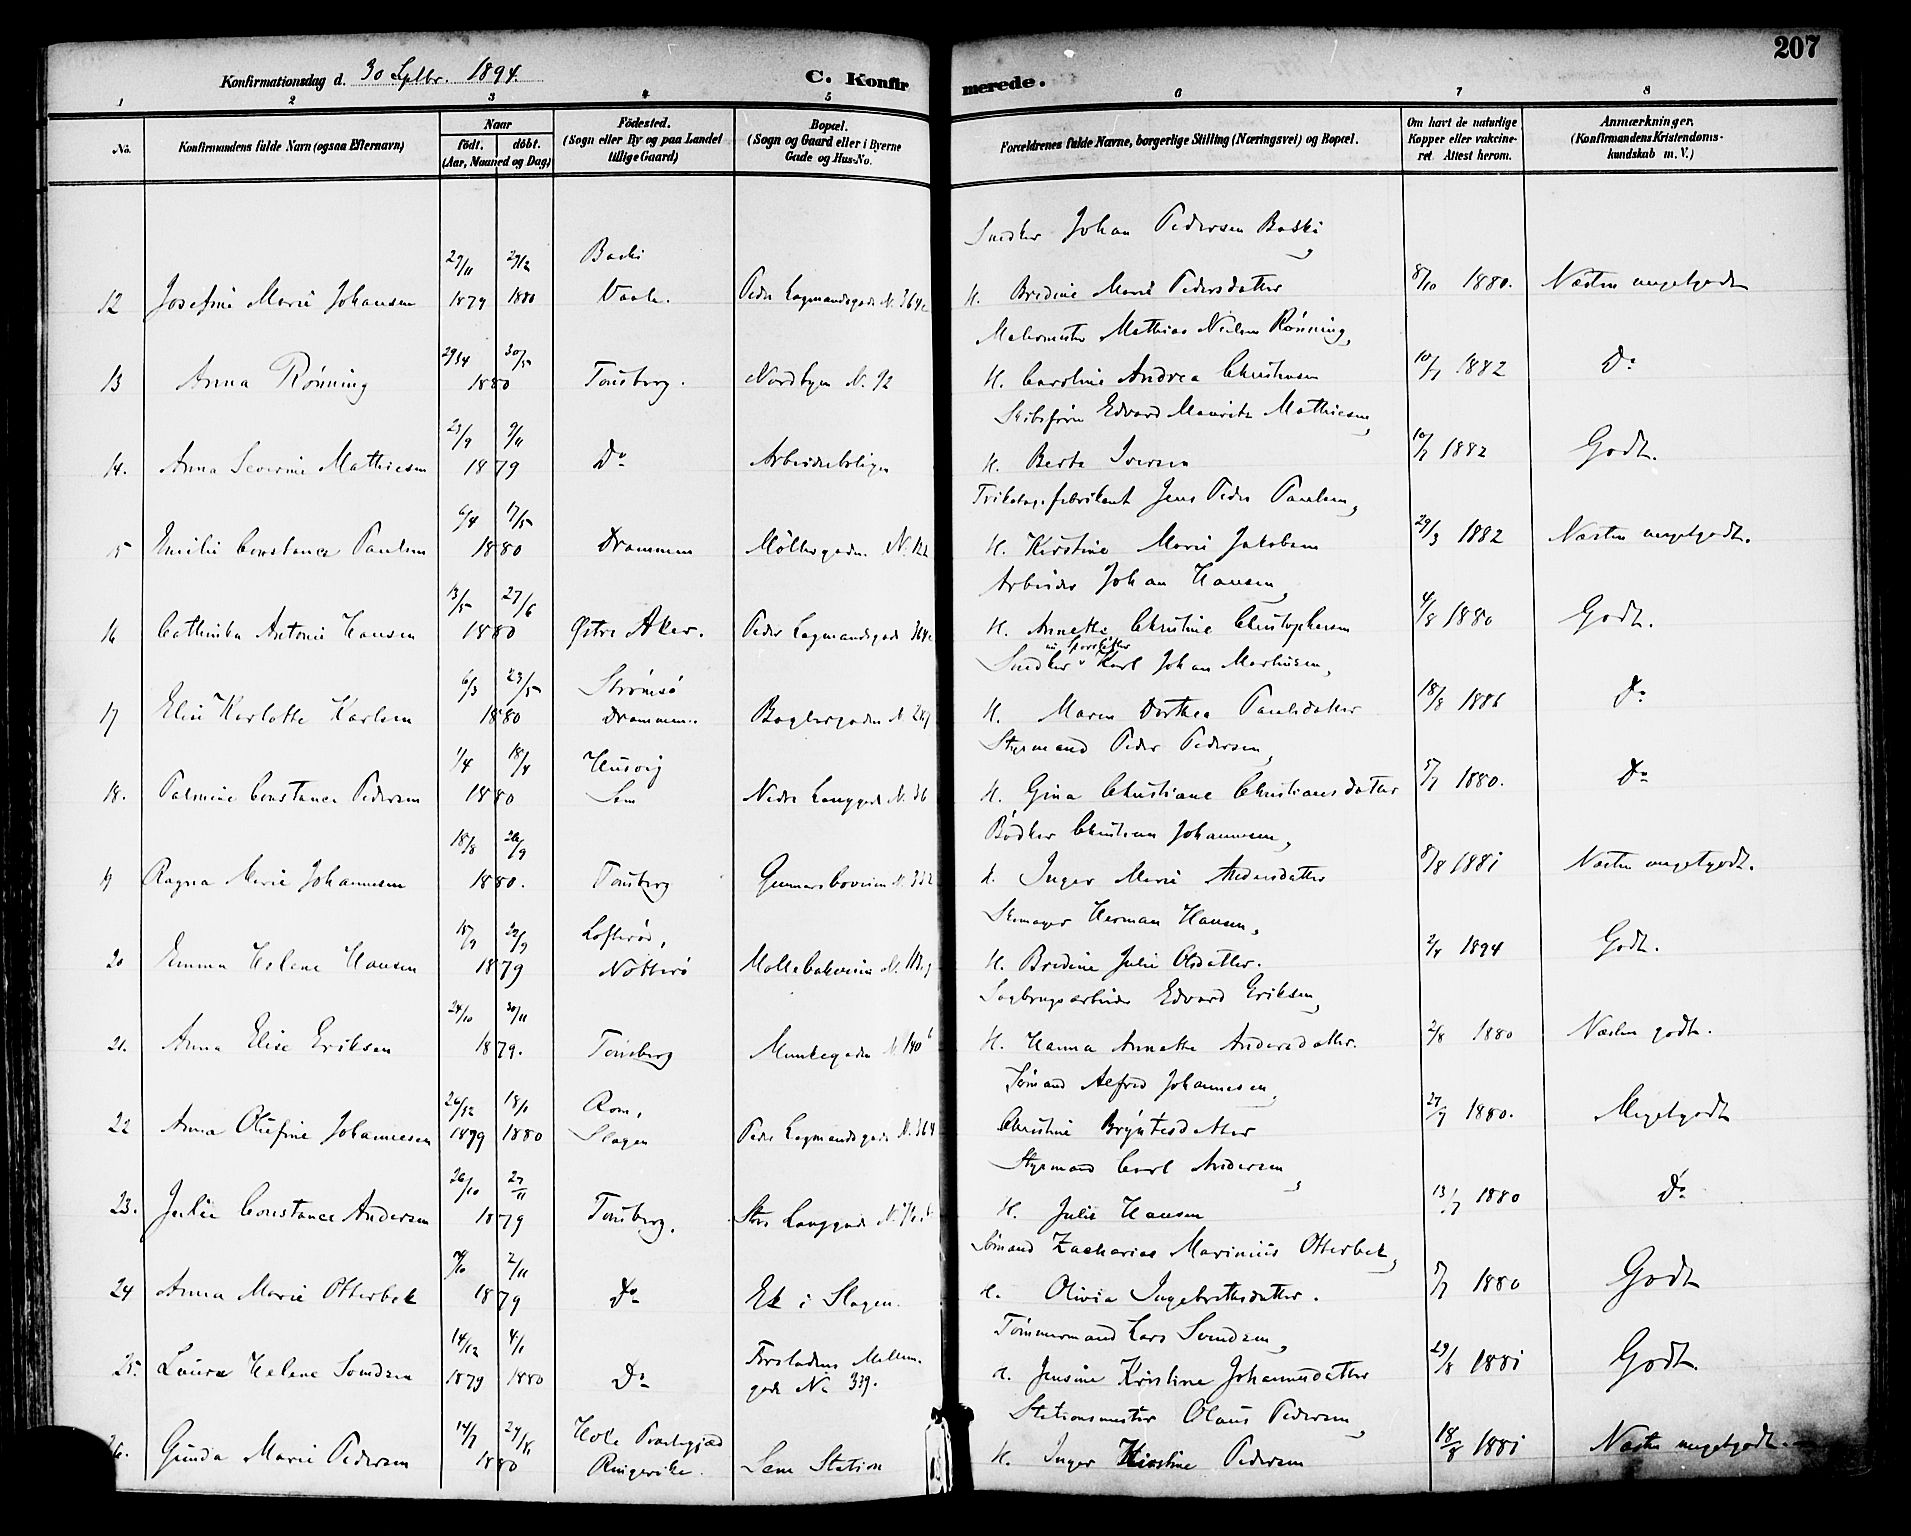 207
Konfirmationsdag d. 30 Septbr. 1894.
C. Konfirmerede.
1 2 3 4 5 6 7 8
No. Konfirmandens fulde Navn (ogsaa Efternavn) Naar født. døbt. (Aar, Maaned og Dag) Födested. (Sogn eller By og paa Landet tillige Gaard) Bopæl. (Sogn og Gaard eller i Byerne Gade og Hus-No. Forældrenes fulde Navne, borgerlige Stilling (Næringsvei) og Bopæl. Om havt de naturlige Kopper eller vaccineret. Attest herom. Anmærkninger, (Konfirmandens Kristendomskundskab m. V.)
Snedker Johan Pedersen Baski,
29/11 29/2 Baski
12 Josefine Marie Johansen 1879 1880 Vaale. Peder Lagmandsgade N. 364c H. Bredine Marie Pedersdatter 8/10 1880. Næsten megetgodt
Malermester Mathias Nielsen Rønning,
13 Anna Rønning 29/4 30/5 1880 Tønsberg. Nordbyen N. 92 H. Caroline Andrea Christensen 10/7 1882 Do
Skibsfører Edvard Mauritz Mathiesen,
14. Anna Severine Mathiesen 23/9 9/11 1879 Do Arbeiderboliger H. Berte Iversen 10/7 1882 Godt.
Trikotagefabrikant Jens Peder Paulsen,
15 Emilie Constance Paulsen 6/4 17/5 1880 Drammen Møllergaden N. 122 H. Kirstine Marie Jakobsen 29/3 1882 Næsten megetgodt.
Arbeider Johan Hansen,
16 Cathinka Antonie Hansen 13/5 27/6 1880 Østre Aker. Peder Lagmandsgade 364c H. Annette Christine Christophersen 4/8 1880 Godt.
Snedker Karl Johan Martinsen,
6/3 23/5 Strømsø
17 Elise Karlotte Karlsen 1880 Drammen. Baglergaden N. H. Maren Dorthea Paulsdatter 18/8 1886 Do
Styrmand Peder Pedersen,
1/4 18/4 Husvig
18. Palmine Constance Pedersen 1880 Sem Nedre Langgade N. 36 H. Gina Christiane Christiansdatter 5/7 1880. Do
Bødker Christian Johannesen,
19 Ragna Marie Johannesen 18/8 26/9 1880. Tønsberg Gunnarsboveien N. 352 H. Inger Marie Andersdatter 8/8 1881 Næsten megetgodt.
Herman Hansen,
Lofterød,
20 Emma Helene Hansen 1879 Nøtterø Møllebakveien N. H. Bredine Julie Olsdatter. 2/4 1894 Godt.
Sagbrugsarbeider Edvard Eriksen,
21. Anna Elise Eriksen 24/10 30/11 1879. Tønsberg Munkegaden N. 140b H. Hanna Annette Andersdatter. 2/8 1880 Næsten godt.
Sømand Alfred Johannesen,
26/12 18/1 Rom,
22 Anna Olufine Johannesen 1879 1880 Slagen Peder Lagmandsgade N. 364 Christine Bryntesdatter 27/7 1880. Megetgodt
Styrmand Carl Andersen,
23. Julie Constance Andersen 26/10 27/11 1879 Tønsberg. Store Langgade N. H. Julie Hansen 13/7 1880 Do
Sømand Zacharias Marinius Otterbek,
24 Anna Marie Otterbek 2/11 1879 Do Ek i Slagen. H. Olivia Ingebrethsdatter. 5/7 1880 Godt
Tømmermand Lars Svendsen,
14/12 4/1 Forstadens Mellem-
25. Laura Helene Svendsen 1879 1880 Do gade No 339. H. Jensine Kristine Johannesdatter 29/8 1881 Godt.
Stationsmester Olaus Pedersen,
14/7 Hole Præstegjæld
26. Gunda Marie Pedersen 1880 Ringerike. Sem Station H. Inger Kirstine Pedersen 18/8 1881 Næsten megetgodt.